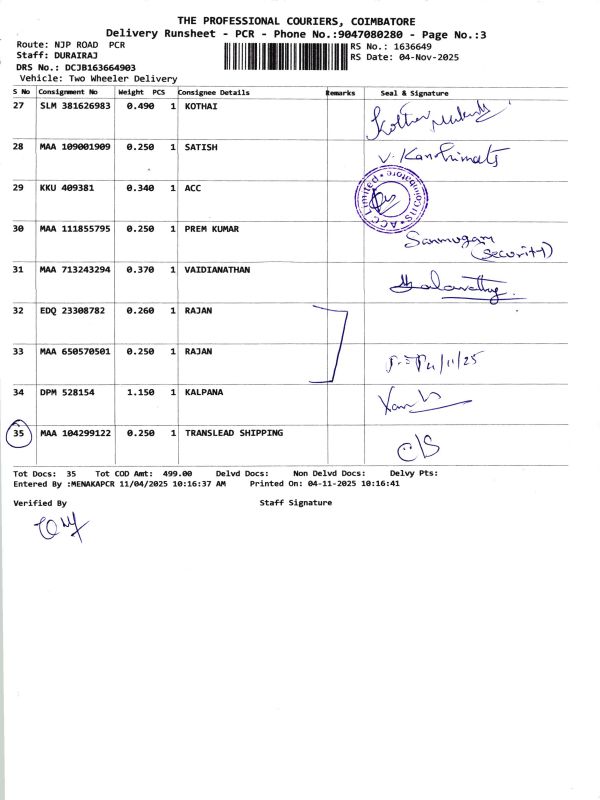 THE PROFESSIONAL COURIERS, COIMBATORE
Delivery Runsheet - PCR - Phone No.:9047080280 - Page No.:3
Route: NJP ROAD PCR
RS No.: 1636649
Staff: DURAIRAJ
RS Date: 04-Nov-2025
DRS No.: DCJB163664903
Vehicle: Two Wheeler Delivery
S No Consignment No Weight PCS Consignee Details Remarks Seal & Signature
27 SLM 381626983 0.490 1 KOTHAI
28 MAA 109001909 0.250 1 SATISH
29 KKU 409381 0.340 1 ACC
ACC Limited * Coimbatore *
30 MAA 111855795 0.250 1 PREM KUMAR Sanmugam
(security)
31 MAA 713243294 0.370 1 VAIDIANATHAN
32 EDQ 23308782 0.260 1 RAJAN
33 MAA 650570501 0.250 1 RAJAN
34 DPM 528154 1.150 1 KALPANA
35 MAA 104299122 0.250 1 TRANSLEAD SHIPPING
Tot Docs: 35 Tot COD Amt: 499.00 Delvd Docs: Non Delvd Docs: Delvy Pts:
Entered By :MENAKAPCR 11/04/2025 10:16:37 AM Printed On: 04-11-2025 10:16:41
Verified By Staff Signature